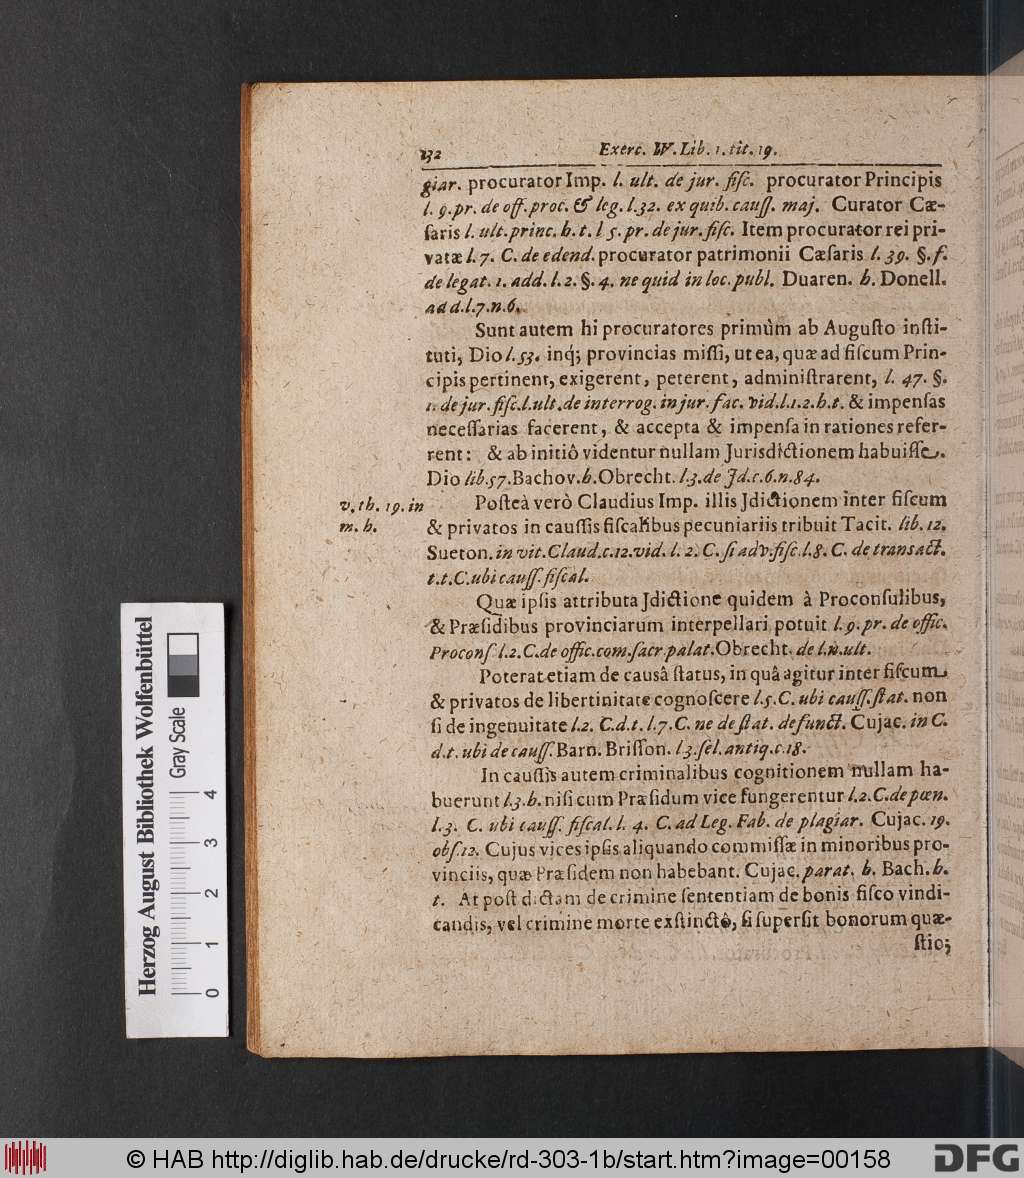 132 Exerc. IV. Lib. 1. tit. 19.
giar. procurator Imp. l. ult. de jur. fiſc. procurator Principis
l. 9. pr. de off. proc. & leg. l. 32. ex quib. cauſſ. maj. Curator Cæ-
ſaris l. ult. princ. h. t. l 5. pr. de jur. fiſc. Item procurator rei pri-
vatæ l. 7. C. de edend. procurator patrimonii Cæſaris l. 39. §. f.
de legat. 1. add. l. 2. §. 4. ne quid in loc. publ. Duaren. h. Donell.
ad d. l. 7. n. 6.
Sunt autem hi procuratores primùm ab Auguſto inſti-
tuti, Dio l. 53. inq́; provincias miſſi, ut ea, quæ ad fiſcum Prin-
cipis pertinent, exigerent, peterent, adminiſtrarent, l. 47. §.
1. de jur. fiſc. l. ult. de interrog. in jur. fac. vid. l. 1. 2. h. t. & impenſas
neceſſarias facerent, & accepta & impenſa in rationes refer-
rent: & ab initiô videntur nullam Jurisdictionem habuiſſe.
Dio lib. 57. Bachov. h. Obrecht. l. 3. de Jd. c. 6. n. 84.
v. th. 19. in
m. h.
Poſteà verò Claudius Imp. illis Jdictionem inter fiſcum
& privatos in cauſſis fiſcalibus pecuniariis tribuit Tacit. lib. 12.
Sueton. in vit. Claud. c. 12. vid. l. 2. C. ſi adv. fiſc. l. 8. C. de transact.
t. t. C. ubi cauſſ. fiſcal.
Quæ ipſis attributa Jdictione quidem à Proconſulibus,
& Præſidibus provinciarum interpellari potuit l. 9. pr. de offic.
Proconſ l. 2. C. de offic. com. ſacr. palat. Obrecht. de l. n. ult.
Poterat etiam de causâ ſtatus, in quâ agitur inter fiſcum
& privatos de libertinitate cognoſcere l. 5. C. ubi cauſſ. ſtat. non
ſi de ingenuitate l. 2. C. d. t. l. 7. C. ne de ſtat. defunct. Cujac. in C.
d. t. ubi de cauſſ. Barn. Briſſon. l. 3. ſel. antiq. c. 18.
In cauſſis autem criminalibus cognitionem nullam ha-
buerunt l. 3. h. niſi cum Præſidum vice fungerentur l. 2. C. de pœn.
l. 3. C. ubi cauſſ. fiſcal. l. 4. C. ad Leg. Fab. de plagiar. Cujac. 19.
obſ. 12. Cujus vices ipſis aliquando commiſſæ in minoribus pro-
vinciis, quæ Præſidem non habebant. Cujac. parat. h. Bach. h.
t. At poſt dictam de crimine ſententiam de bonis fiſco vindi-
candis, vel crimine morte exſtinctô, ſi ſuperſit bonorum quæ-
ſtio;
Herzog August Bibliothek Wolfenbüttel
Gray Scale
0 1 2 3 4
© HAB http://diglib.hab.de/drucke/rd-303-1b/start.htm?image=00158
DFG